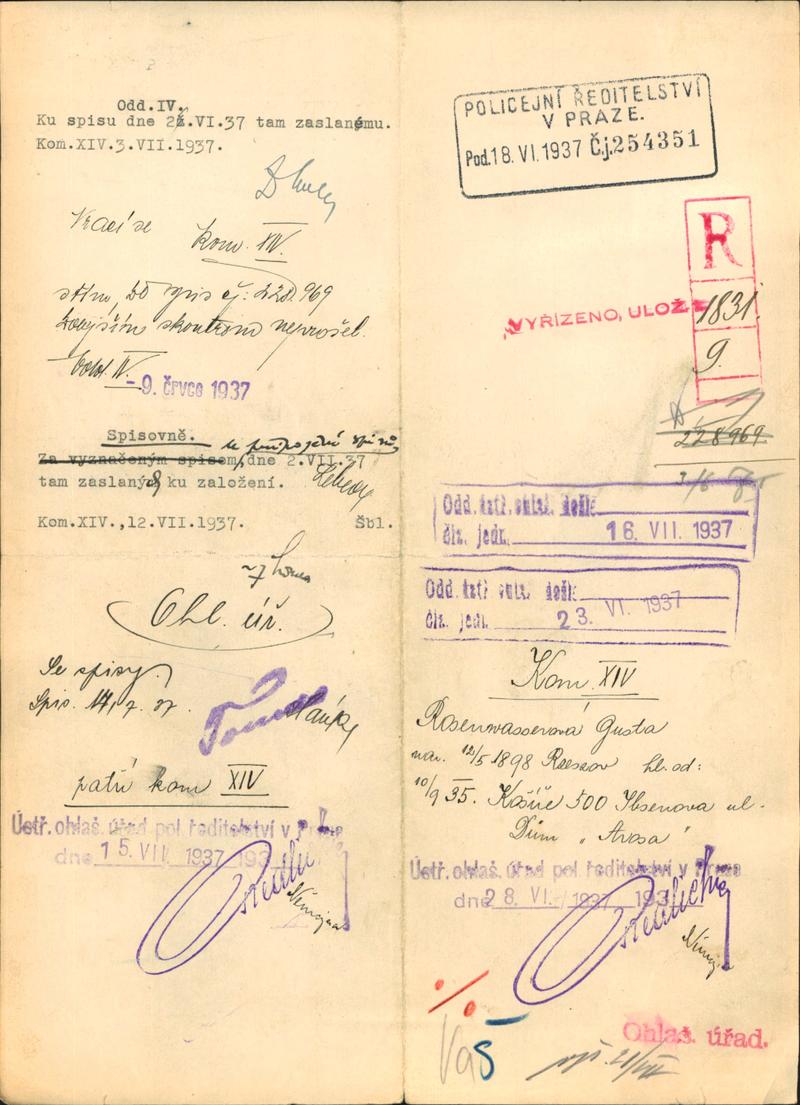 Odd.IV.
Ku spisu dne 22.VI.37 tam zaslanému.
Kom.XIV.3.VII.1937.
Vrací se
Kom. XIV.
spis čj: 228.969
zdejším skontrem neprošel.
Odd. IV.
- 9. črvce 1937
Spisovně.
Za vyznačeným spisem, dne 2.VII.37
tam zaslaných ku založení.
Kom.XIV.,12.VII.1937.
Šbl.
Ohl. úř.
Se spisy.
Spis. 14/7. 37.
patří kom XIV
Ústř. ohlaš. úřad pol. ředitelství v Praze
dne 15. VII. 1937 193
POLICEJNÍ ŘEDITELSTVÍ
V PRAZE.
Pod. 18. VI. 1937 Č.j. 254351
R
1831.
9.
VYŘÍZENO, ULOŽ
228969
Odd. ústř. ohlaš. došlo
čís. jedn. 16. VII. 1937
Odd. ústř. ohlaš. došlo
čís. jedn. 23. VI. 1937
Kom. XIV
Rosenwasserová Gusta
nar. 12/5 1898 Rzeszov hl. od:
10/9 35. Košíře 500 Ibsenova ul.
Dům „Arosa"
Ústř. ohlaš. úřad pol. ředitelství v Praze
dne 28. VI. 1937 193
Ohlaš. úřad.